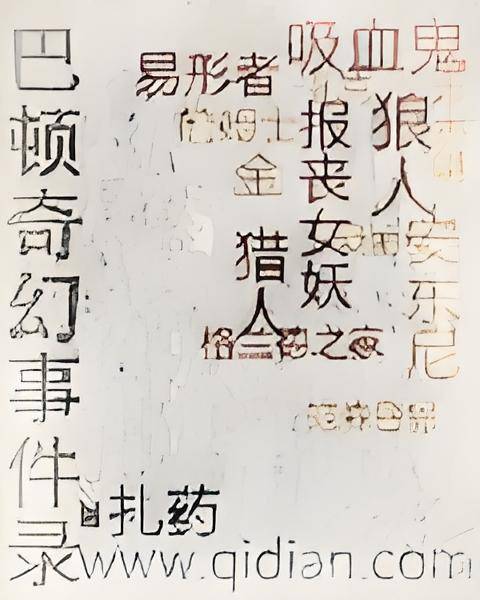 巴顿奇幻事件录
吸血鬼
易形者
狼人
报丧女妖
詹姆士
金
安东尼
猎人
格兰德之夜
扎药
www.qidian.com